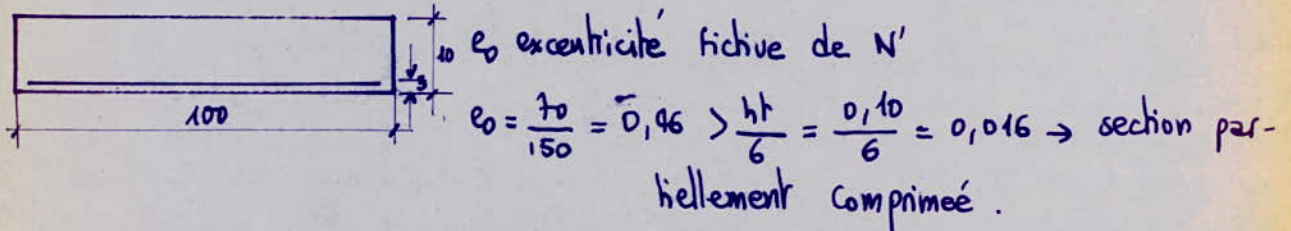 10 e₀ excentricité fictive de N'
3
100
e₀ = 70/150 = 0,46 > ht/6 = 0,10/6 = 0,016 → section par-
tiellement comprimeé.